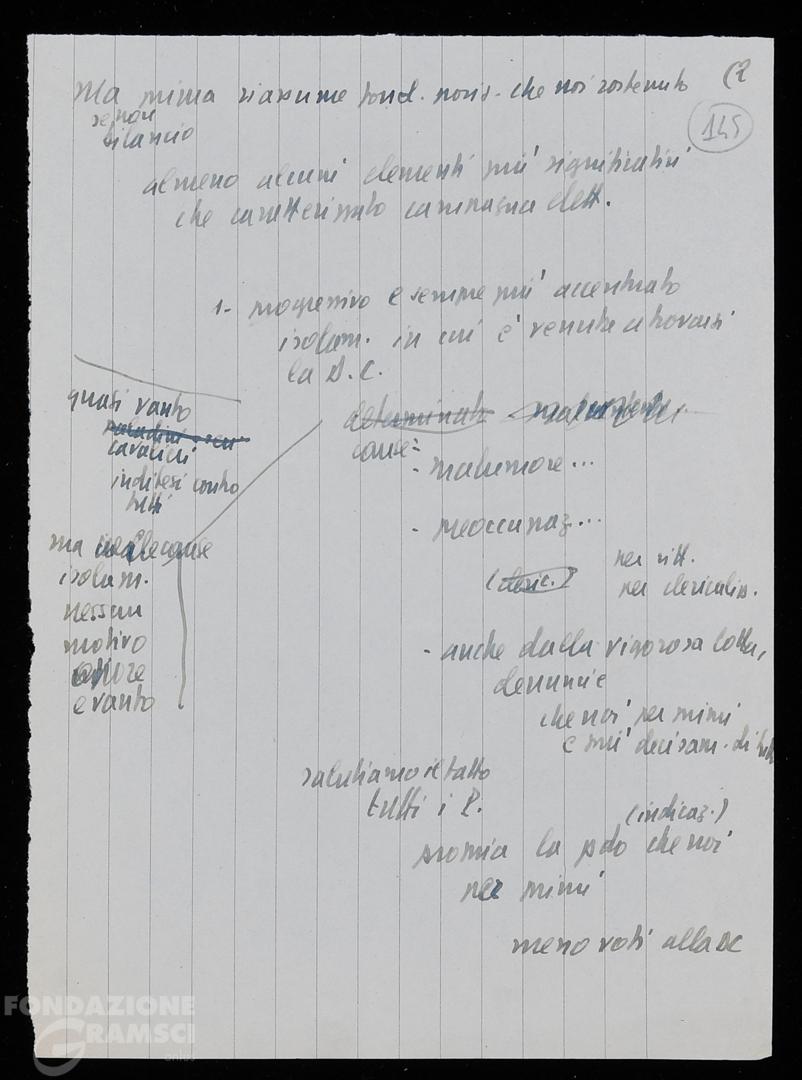 (2
145
Ma prima riassume fond. posiz. che noi sostenuto
se non
bilancio
almeno alcuni elementi più significativi
che caratterizzato campagna elett.
1- progressivo e sempre più accentuato
isolam. in cui è venuta a trovarsi
la D.C.
determinato
cause:
- malumore...
- preoccupaz...
(cleric.) per ritt.
per clericalis.
- anche dalla vigorosa lotta,
denuncie
che noi per primi
e più decisam. di tutti
quasi vanto
paladini
cavalieri
indifesi contro
tutti
ma cause
isolam.
nessun
motivo
onore
e vanto
salutiamo il fatto
tutti i P.
(indicaz.)
propria la pdo che noi
per primi
meno voti alla DC
FONDAZIONE
GRAMSCI
onlus